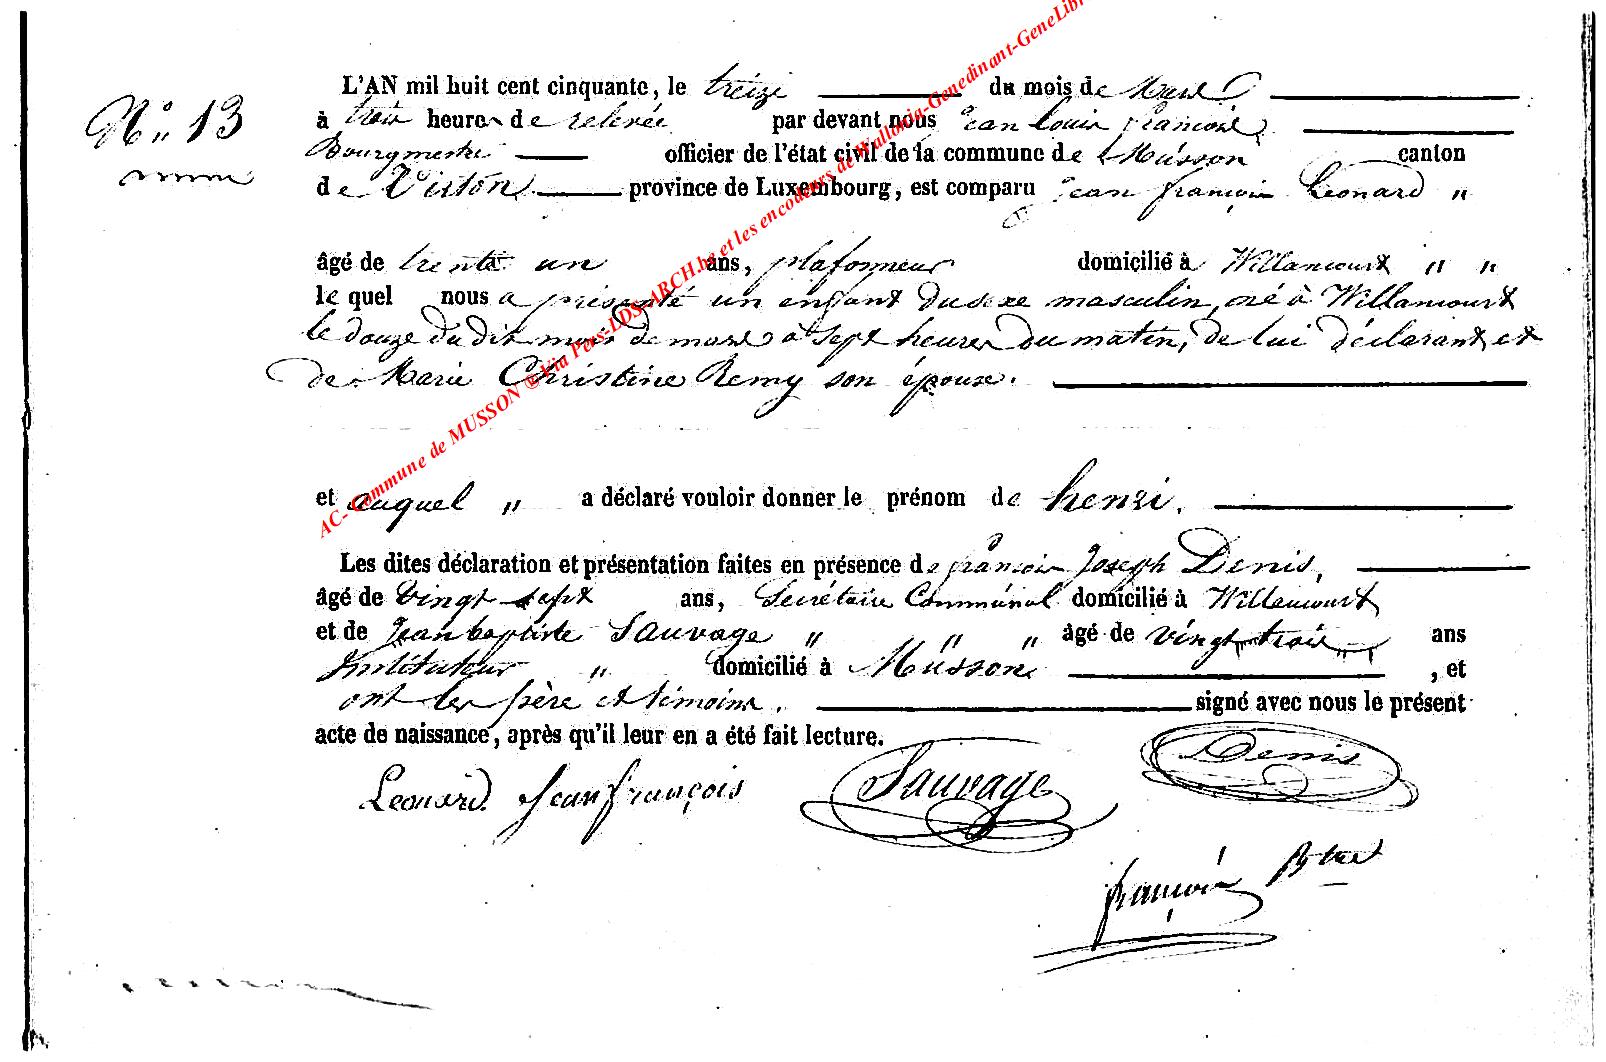 N° 13
L'AN mil huit cent cinquante, le treize du mois de Mars
à trois heures de relevée par devant nous Jean Louis françois
Bourgmestre officier de l'état civil de la commune de Musson canton
de Virton province de Luxembourg, est comparu Jean françois Léonard "
âgé de trente un ans, plafonneur domicilié à Willancourt " "
le quel nous a présenté un enfant du sexe masculin, né à Willancourt
le douze du dit mois de mars à sept heures du matin, de lui déclarant et
de Marie Christine Remy son épouse.
et auquel " a déclaré vouloir donner le prénom de henri.
Les dites déclaration et présentation faites en présence de françois Joseph Denis,
âgé de vingt sept ans, Secrétaire Communal domicilié à Willancourt
et de Jean baptiste Sauvage " " " âgé de vingt trois ans
Instituteur " domicilié à Musson , et
ont les père et témoins. signé avec nous le présent
acte de naissance, après qu'il leur en a été fait lecture.
Leonard Jean françois Sauvage Denis
françois Btre
AC- Commune de MUSSON ® Via Pers-LDS-ARCH.be et les encodeurs de Wallonia-Genedinant-GeneLibr